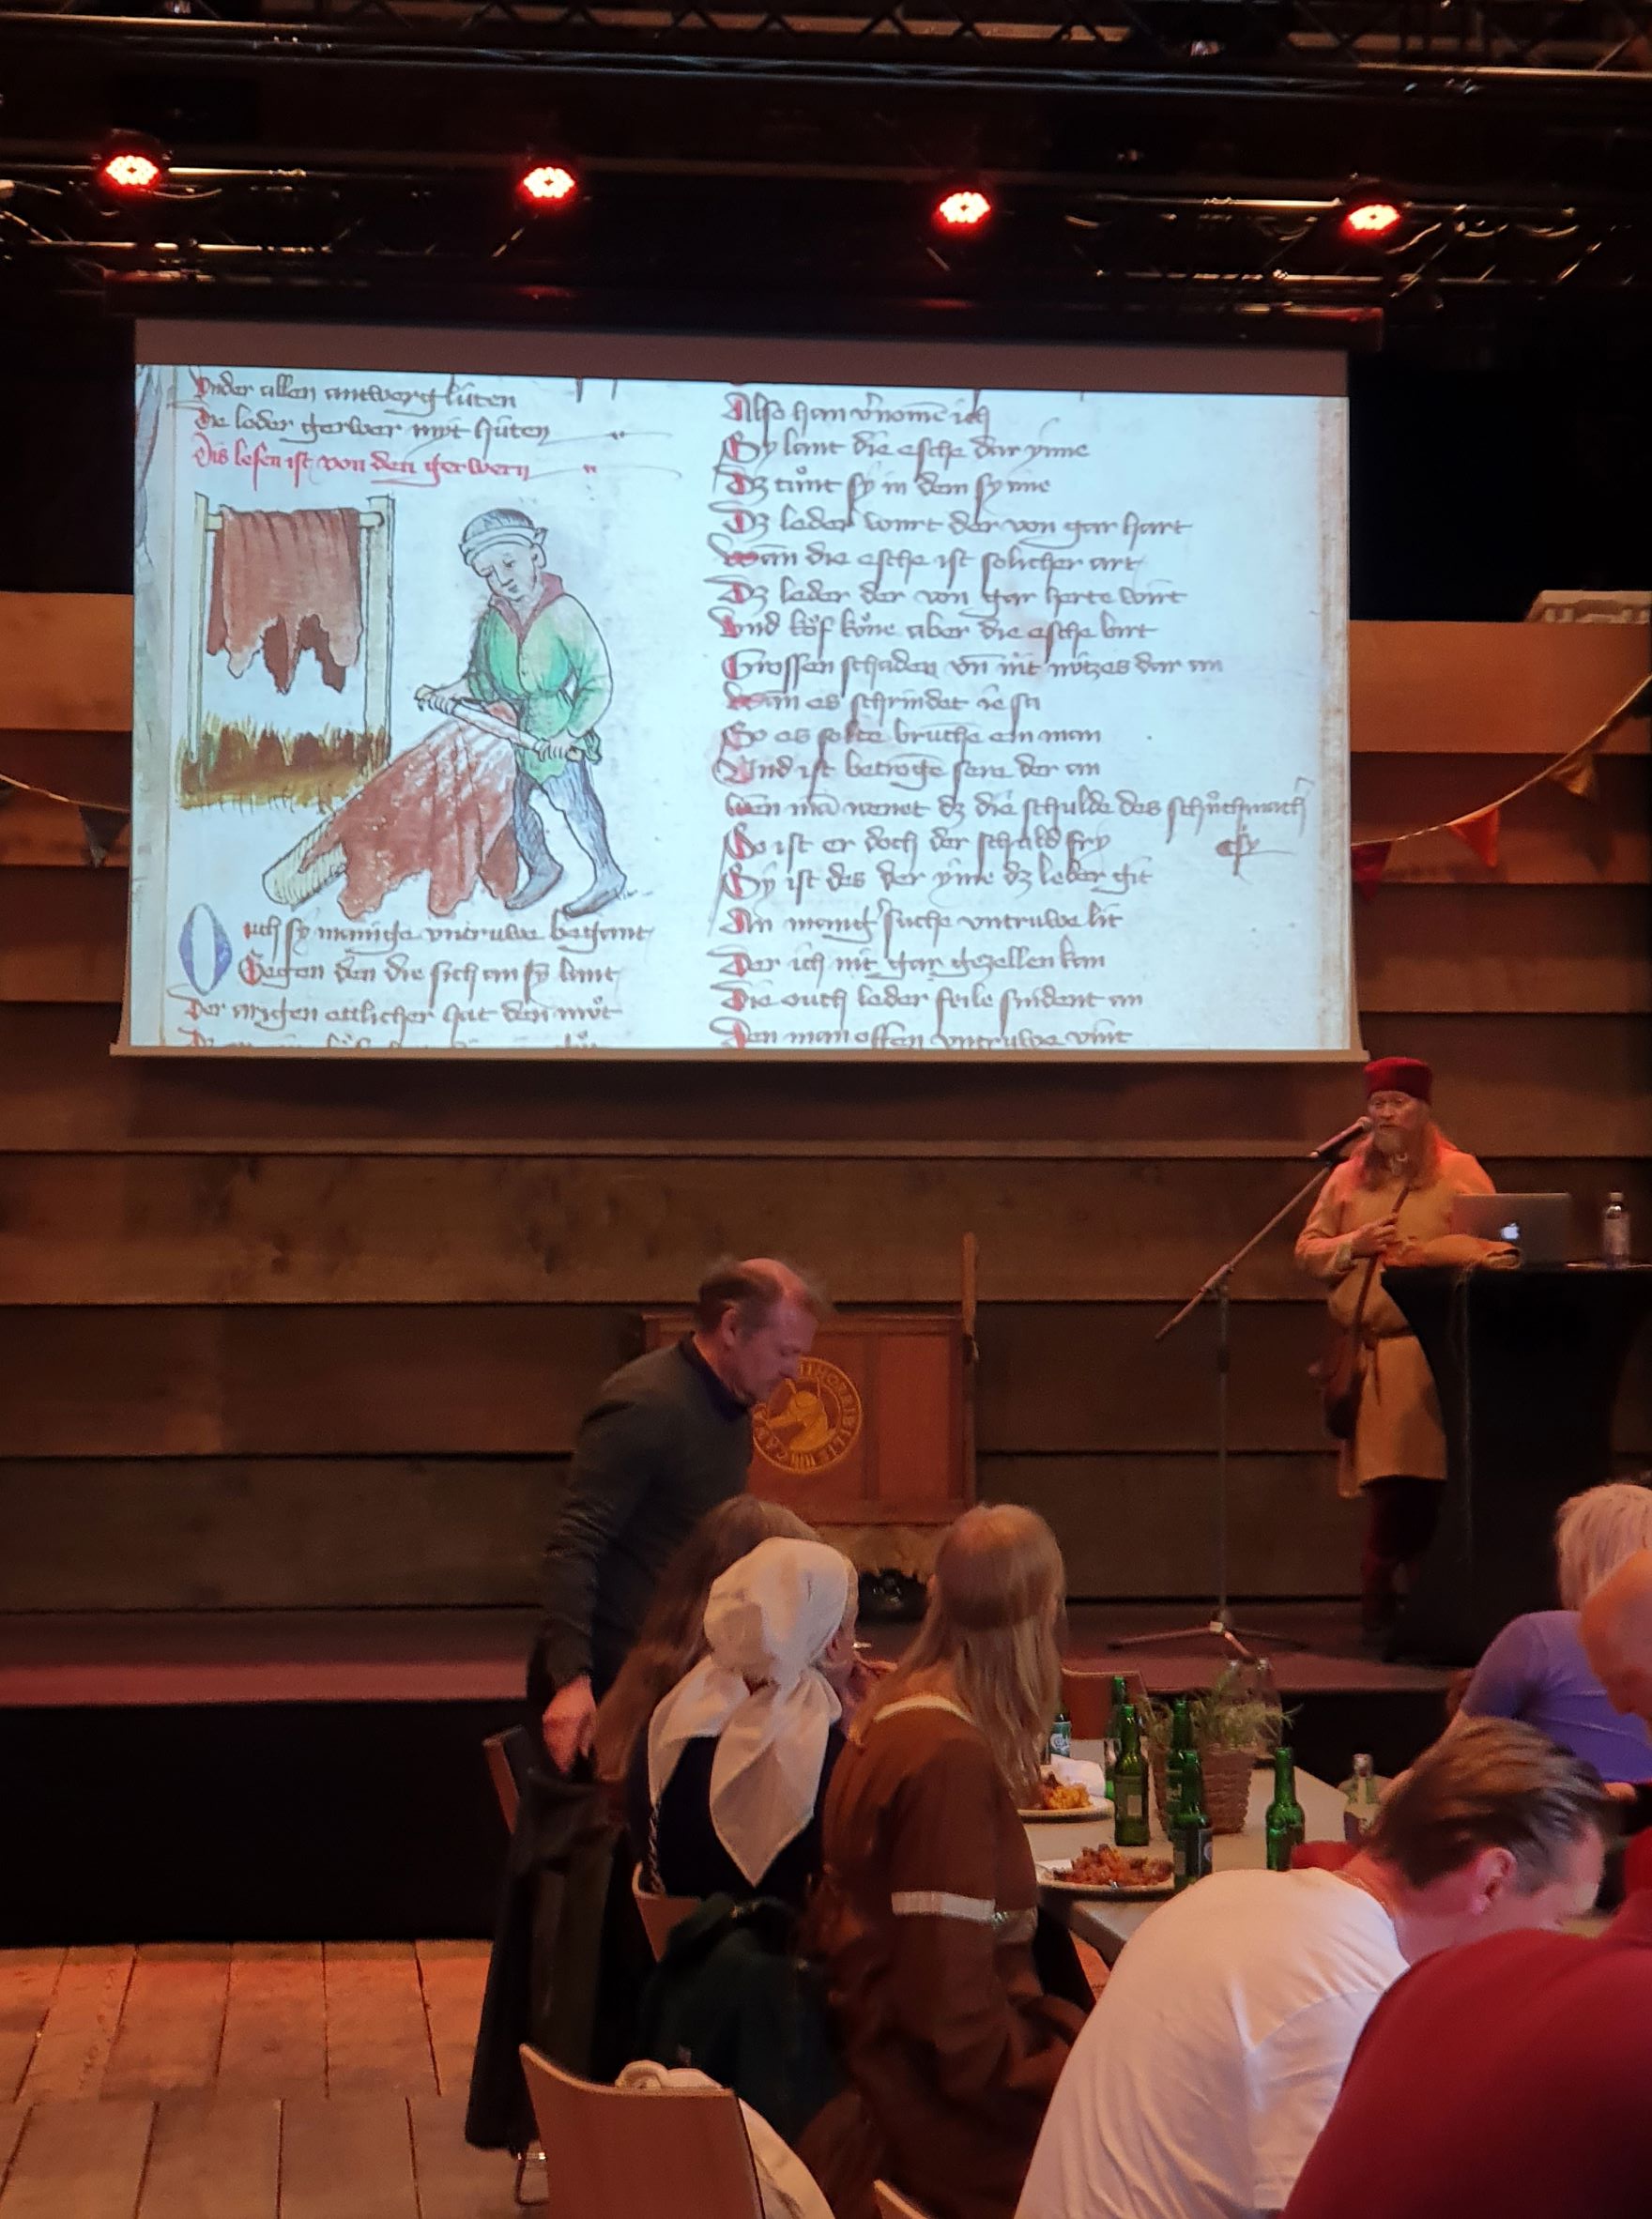 Vnder allen antwerglüten
Die leder gerwer mÿt hüten
Dis lesen ist von den gerwern
Ouch sÿ manige vntruwe begant
Gegen den die sich an sÿ lant
Der irrigen ettlicher hat den můt
Also han v̄nomē ich
Sÿ lant die esche dar ÿnne
Dz tůnt sÿ in dem sÿnne
Dz leder wurt der von gar hart
Wan die esche ist solicher art
Dz leder der von gar herte wirt
Vnd die esche birt
Grossen schaden vn̄ nit nützes dar an
Wan es schrindet ie sa
So es solte bruchē ein man
Vnd ist betrogē sere der an
Wen mā wenet dz die schulde des schůchmach
sÿ
So ist er doch der schuld frÿ
Sÿ ist des der ÿme dz leder git
An manig' suche vntruwe lit
Der ich nit gar gezellen kan
Die ouch leder feile findent an
Den man offen vntruwe vint